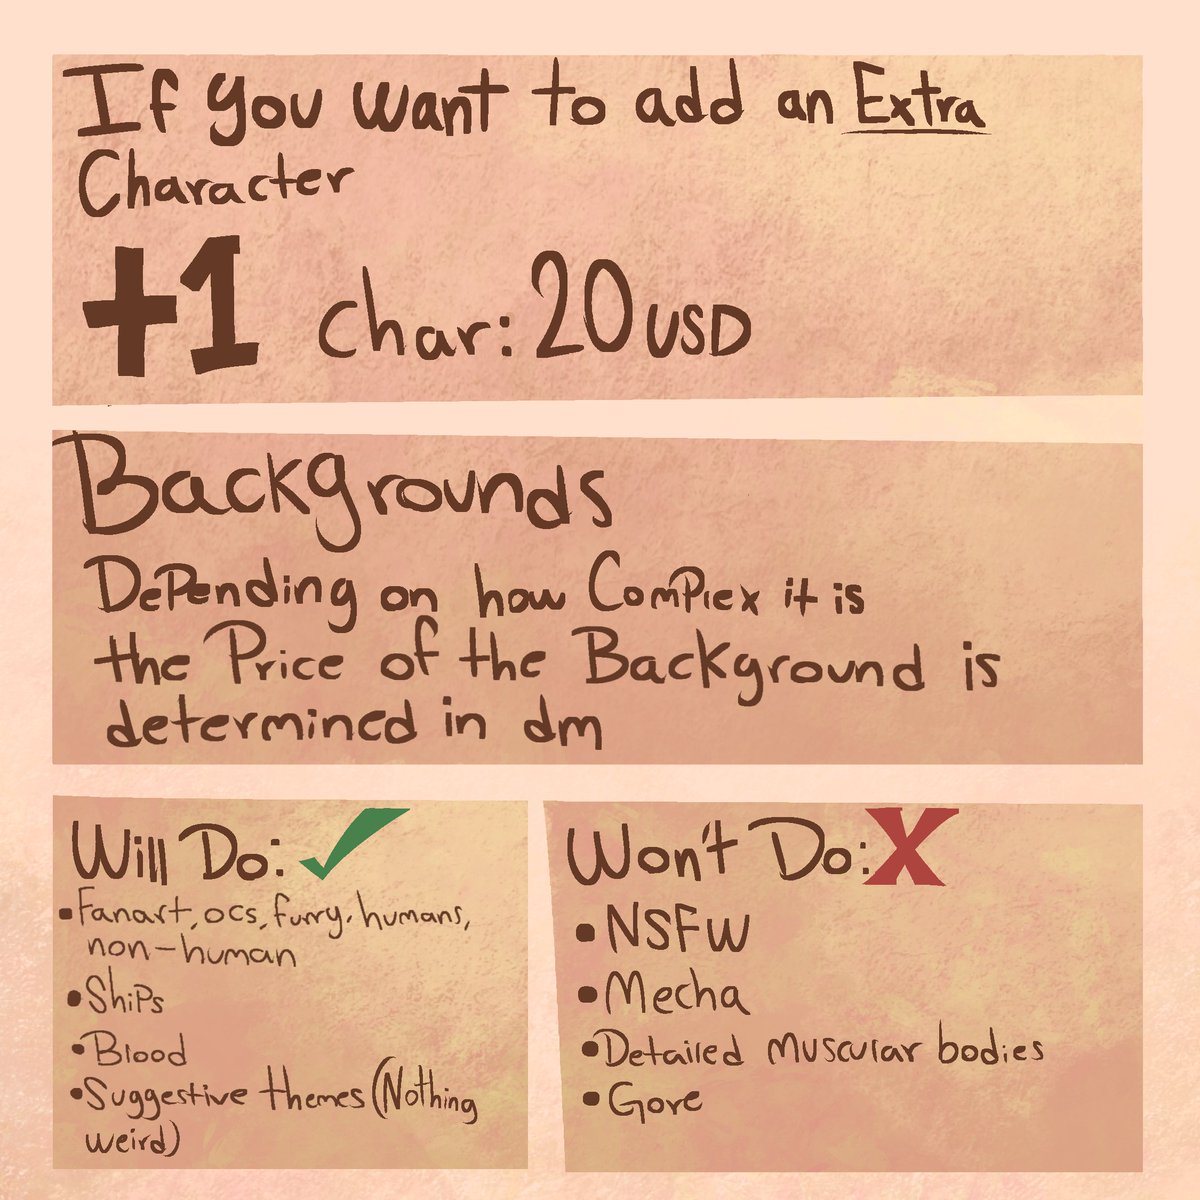 If you want to add an Extra
Character
+1 Char: 20 USD
Backgrounds
Depending on how Complex it is
the Price of the Background is
determined in dm
Will Do:
• Fanart, ocs, furry, humans,
non-human
• Ships
• Blood
• Suggestive themes (Nothing
weird)
Won't Do: X
• NSFW
• Mecha
• Detailed muscular bodies
• Gore